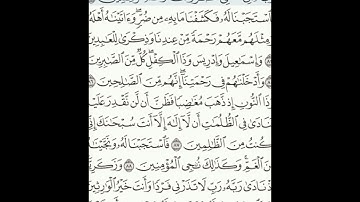 ٱسْتَجَبْنَا لَهُۥ فَكَشَفْنَا مَا بِهِۦ مِن ضُرٍّ وَءَاتَيْنَٰهُ أَهْلَهُۥ
وَمِثْلَهُم مَّعَهُمْ رَحْمَةً مِّنْ عِندِنَا وَذِكْرَىٰ لِلْعَٰبِدِينَ
وَإِسْمَٰعِيلَ وَإِدْرِيسَ وَذَا ٱلْكِفْلِ كُلٌّ مِّنَ ٱلصَّٰبِرِينَ
وَأَدْخَلْنَٰهُمْ فِى رَحْمَتِنَآ إِنَّهُم مِّنَ ٱلصَّٰلِحِينَ
ذَا ٱلنُّونِ إِذ ذَّهَبَ مُغَٰضِبًا فَظَنَّ أَن لَّن نَّقْدِرَ عَلَيْهِ
نَادَىٰ فِى ٱلظُّلُمَٰتِ أَن لَّآ إِلَٰهَ إِلَّآ أَنتَ سُبْحَٰنَكَ إِنِّى
كُنتُ مِنَ ٱلظَّٰلِمِينَ ٨٧ فَٱسْتَجَبْنَا لَهُۥ وَنَجَّيْنَٰهُ
مِنَ ٱلْغَمِّ وَكَذَٰلِكَ نُۨجِى ٱلْمُؤْمِنِينَ ٨٨ وَزَكَرِيَّآ
إِذْ نَادَىٰ رَبَّهُۥ رَبِّ لَا تَذَرْنِى فَرْدًا وَأَنتَ خَيْرُ ٱلْوَٰرِثِينَ